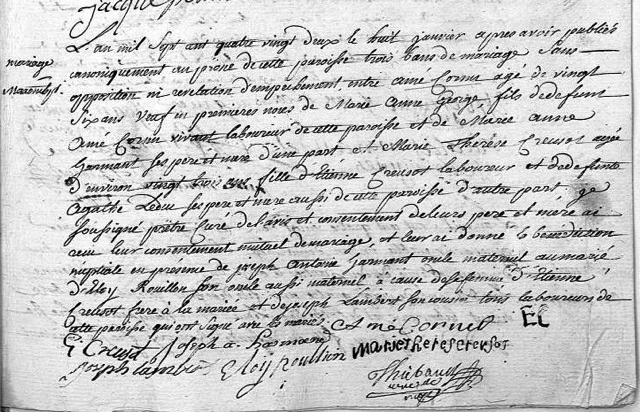 Jacque
mariage
L'an mil Sept ant quatre vingt deux le huit janvier apres avoir publiés
canoniquement au prone de cette paroisse trois bans de mariage Sans
opposition ni revelation d'empechement entre ame Cornu agé de vingt
Six ans veuf en premieres noces de Marie Anne George fils de defunt
Amé Cornu vivant laboureur de cette paroisse et de Marie anne
Garmant ses pere et mere d'une part et Marie Therese Creusot agée
d'environ vingt trois ans fille d'Etienne Creusot laboureur et de defunte
Agathe Leduc ses pere et mere aussi de cette paroisse d'autre part je
Soussigné prêtre Curé de l'avis et consentement de leurs pere et mere ai
recu leur consentement mutuel de mariage, et leur ai donné la benediction
nuptiale en presence de joseph Antoine Garmont oncle maternel au marié
d'Eloy Rouillon son oncle aussi maternel à cause de sa femme d'Etienne
Creusot frere à la mariée et de joseph Lambert son cousin tous laboureurs de
cette paroisse qui ont signé avec les mariés
A mé Cornu
EC
E Creusot joseph a. Garmand
marie therese creusot
joseph lambert Eloy rouillon
Thiebaud